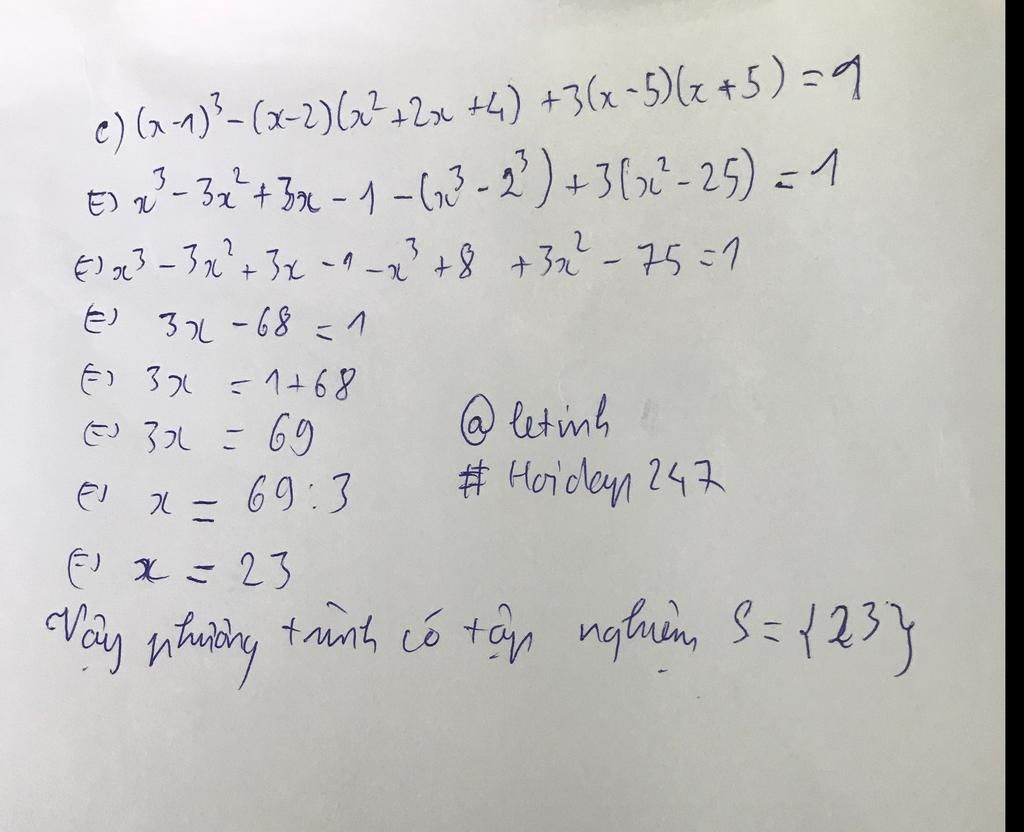 c) (x-1)³ - (x-2)(x² + 2x + 4) + 3(x-5)(x+5) = 1
⇔ x³ - 3x² + 3x - 1 - (x³ - 2³) + 3(x² - 25) = 1
⇔ x³ - 3x² + 3x - 1 - x³ + 8 + 3x² - 75 = 1
⇔ 3x - 68 = 1
⇔ 3x = 1 + 68
⇔ 3x = 69
@ letinh
⇔ x = 69 : 3
# Hoidap 247
⇔ x = 23
Vậy phương trình có tập nghiệm S = {23}